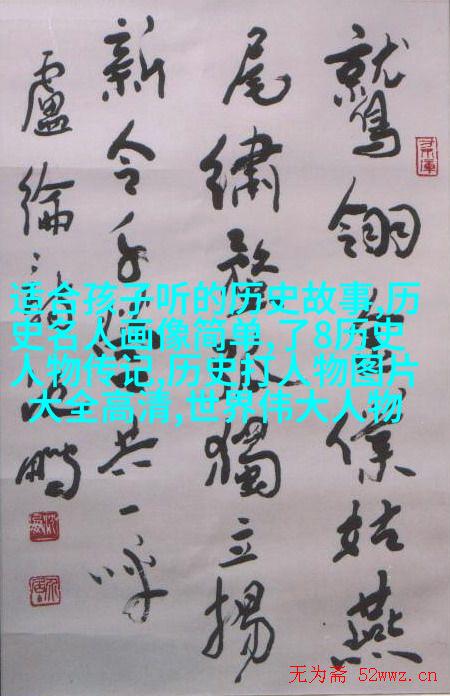 鷲翎金僕姑燕
尾繡獨立揚
新令千共一呼
盧綸詩鵬
适合孩子听的历史故事,历
史名人画像简单,了8历史
人物传记,历史打人物图片
大全高清,世界伟大人物
无为斋 52wwz.cn